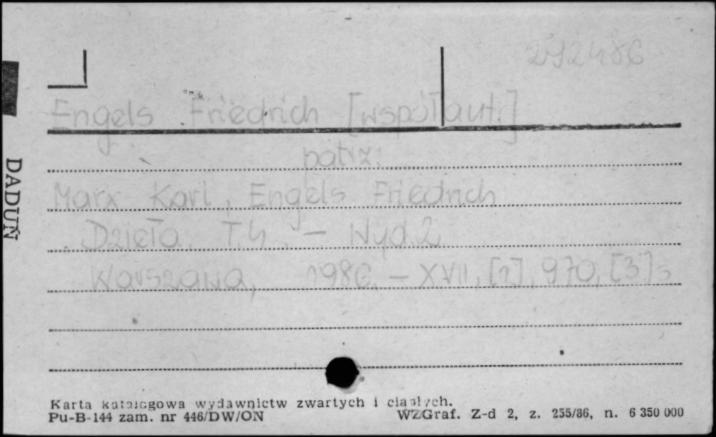 292486
Engels Friedrich [współaut.]
patrz:
Marx Karl, Engels Friedrich
Dzieła. T.4. – Wyd. 2
Warszawa, 1986. – XVII, [1], 970, [3] s
DADUŃ
Karta katalogowa wydawnictw zwartych i ciągłych.
Pu-B-144 zam. nr 446/DW/ON
WZGraf. Z-d 2, z. 255/86, n. 6 350 000